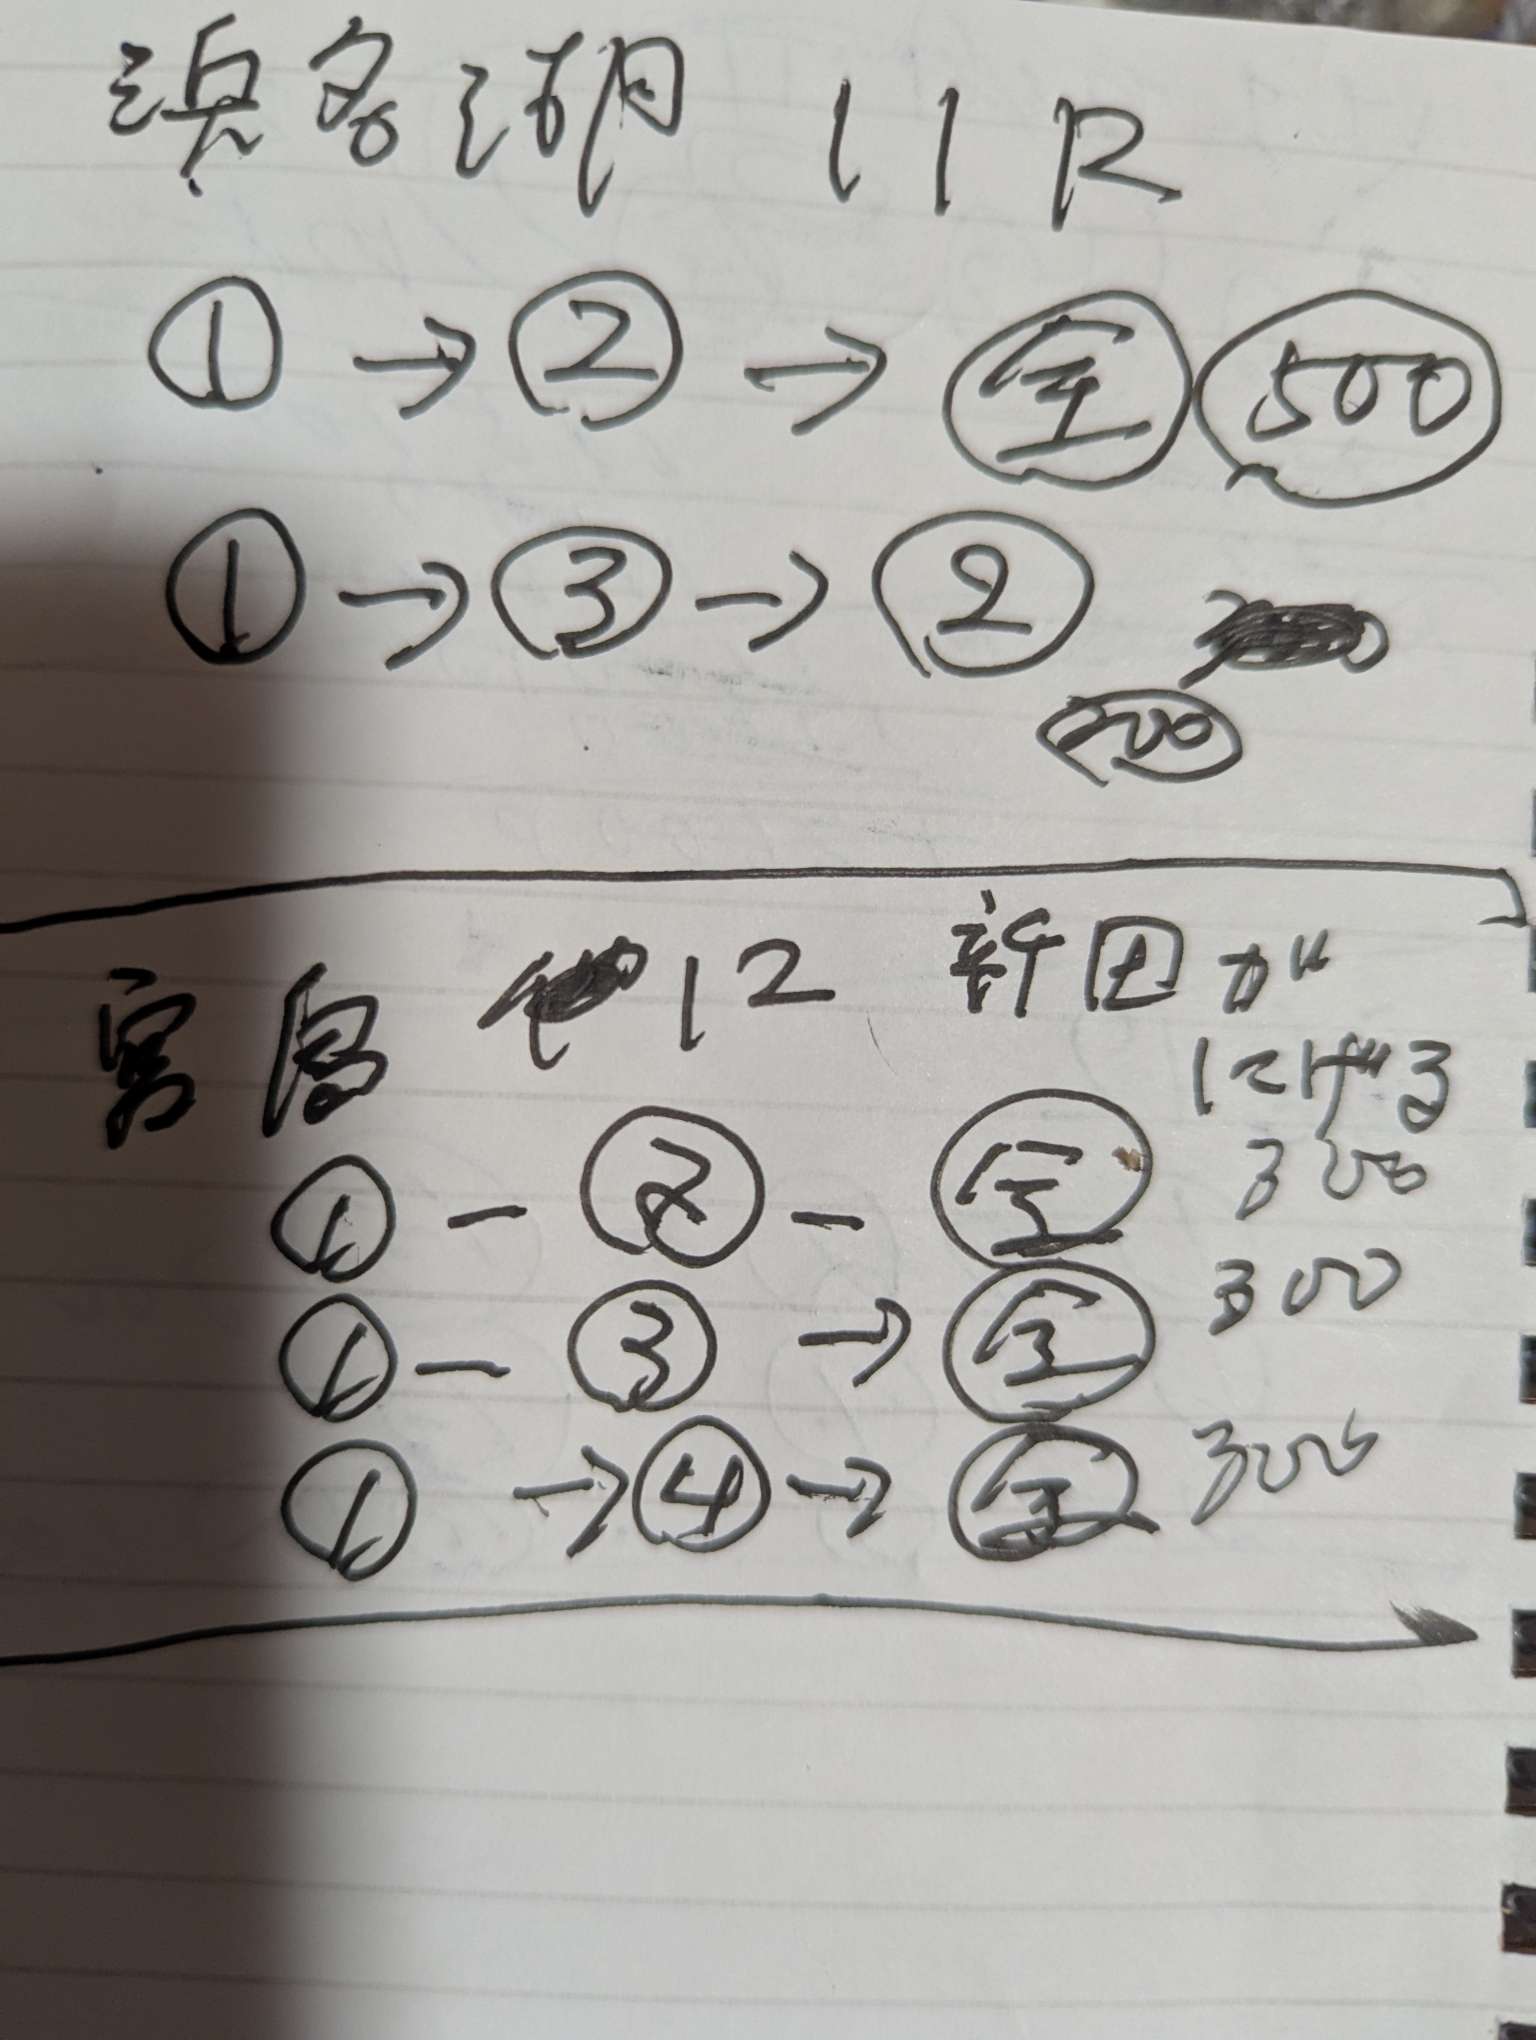 浜名湖 11R
① → ② → 全 500
① → ③ → ②
宮島 12 許田が
にげる
① - ② - 全 300
① - ③ → 全 300
① → ④ → 全 300